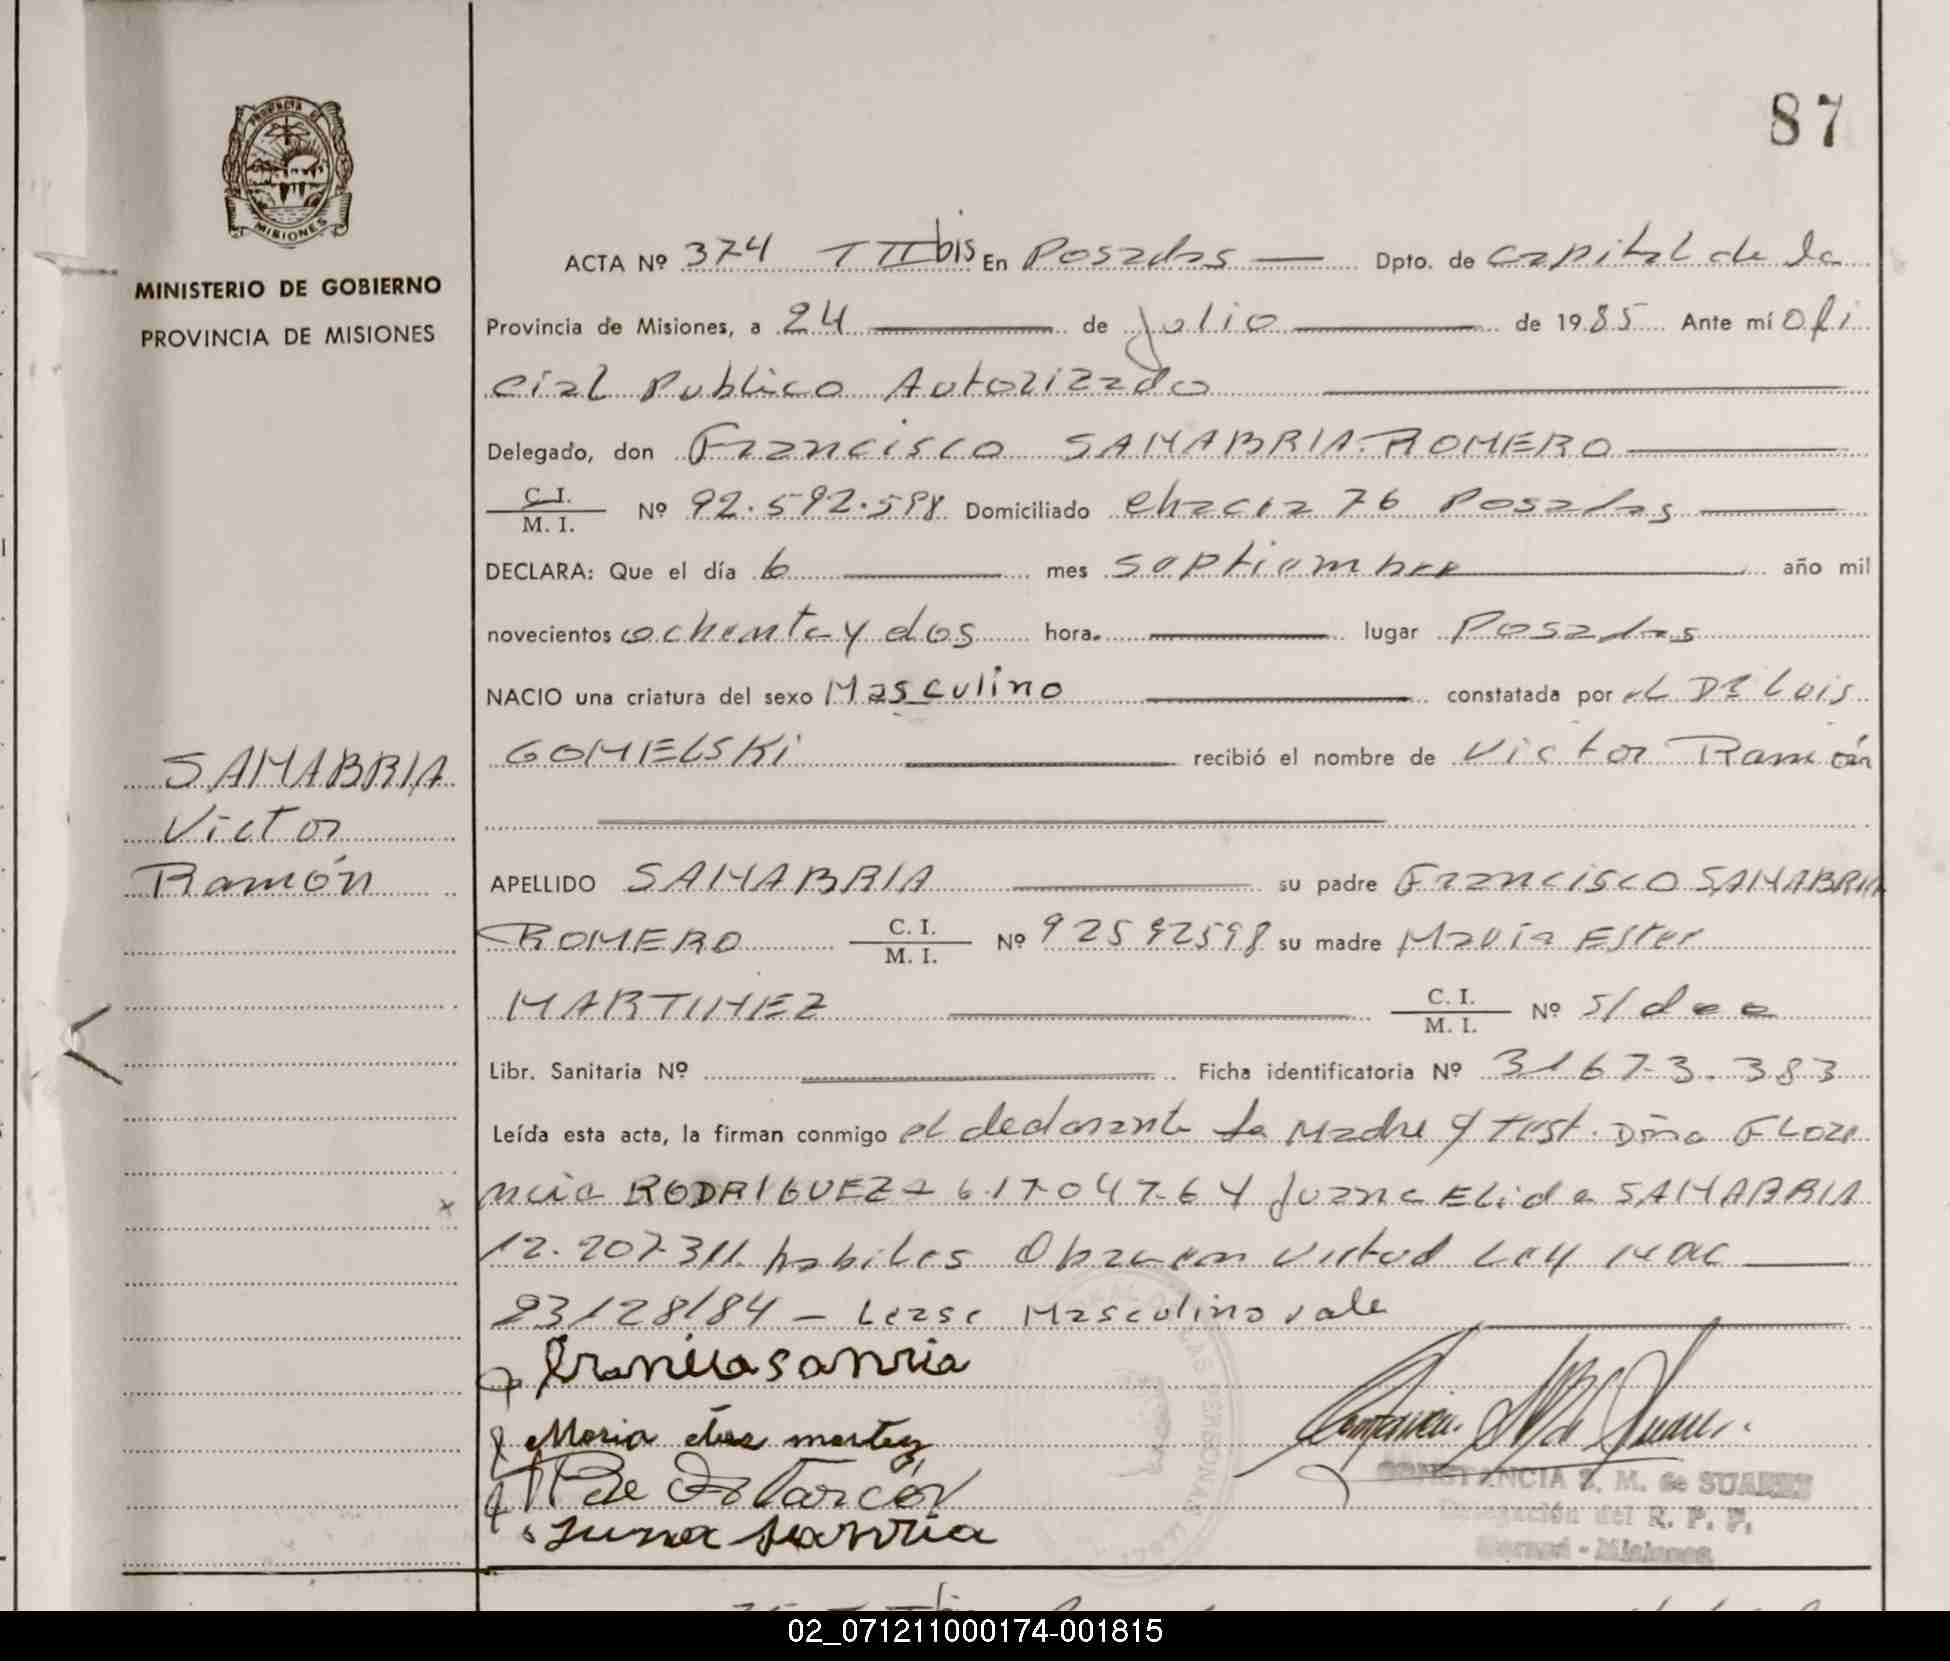 87
PROVINCIA DE
MISIONES
MINISTERIO DE GOBIERNO
PROVINCIA DE MISIONES
ACTA Nº 374 TIIbis En Posadas Dpto. de capital de la
Provincia de Misiones, a 24 de julio de 1985 Ante mí Ofi
cial Publico Autorizado
Delegado, don Francisco SANABRIA ROMERO
C. I. / M. I. Nº 92.592.598 Domiciliado chacra 76 Posadas
DECLARA: Que el día 6 mes septiembre año mil
novecientos ochenta y dos hora lugar Posadas
NACIO una criatura del sexo Masculino constatada por el DR Luis
GOMELSKI recibió el nombre de Victor Ramón
SANABRIA
Victor
Ramón
APELLIDO SANABRIA su padre Francisco SANABRIA
ROMERO C. I. / M. I. Nº 92592598 su madre Maria Ester
MARTINEZ C. I. / M. I. Nº s/doc
Libr. Sanitaria Nº Ficha identificatoria Nº 31673.383
Leída esta acta, la firman conmigo el declarante la Madre y test. Dña FLORE
ncia RODRIGUEZ 6.17.047.64 Juana Elida SANABRIA
12.207.311 habiles Obra en virtud Ley Nac
23128/84 - Lease Masculino vale
Maria
CONSTANCIA S. M. de SUAREZ
Delegación del R. P. P.
- Misiones
02_071211000174-001815